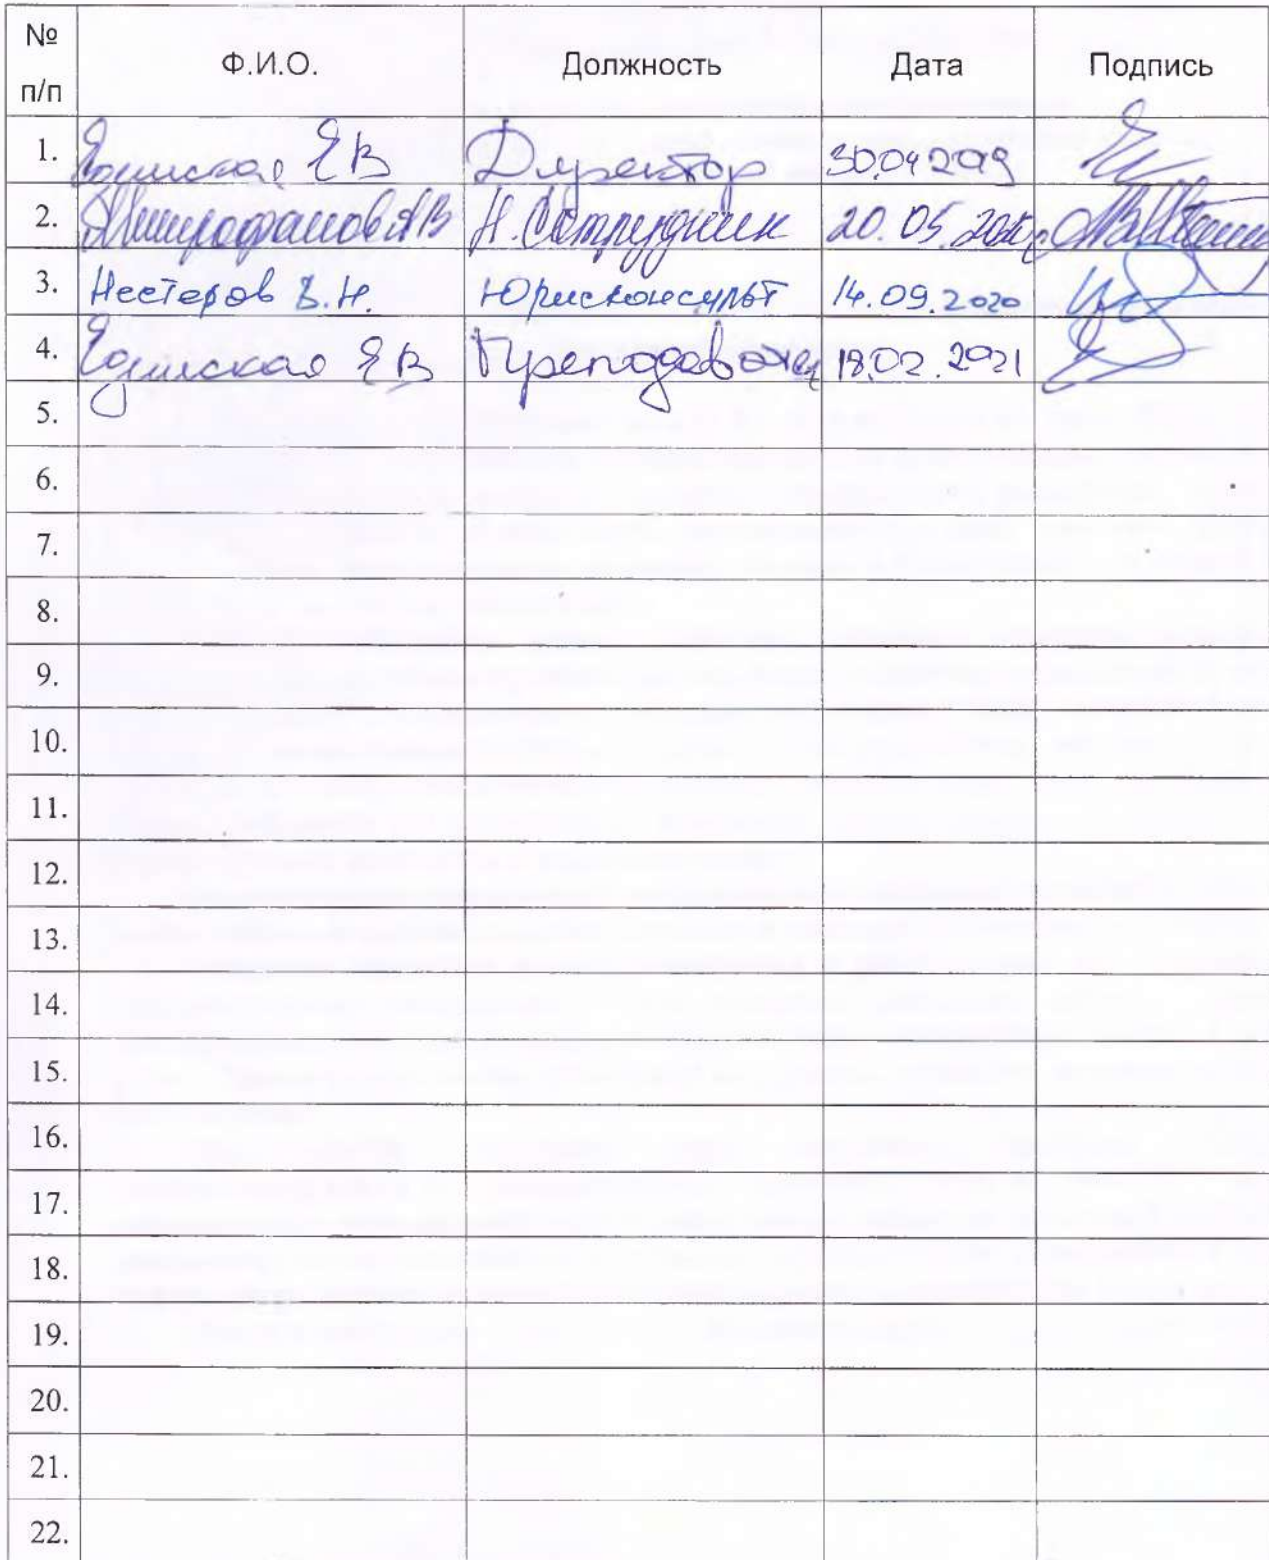 № п/п Ф.И.О. Должность Дата Подпись
1. Едимская ЕВ Директор 30.04 2019
2. Митрофанов АВ Н. Сотрудник 20. 05.
3. Нестеров В.Н. Юрисконсульт 14.09.2020
4. Едимская ЕВ Преподаватель 18.02.2021
5.
6.
7.
8.
9.
10.
11.
12.
13.
14.
15.
16.
17.
18.
19.
20.
21.
22.